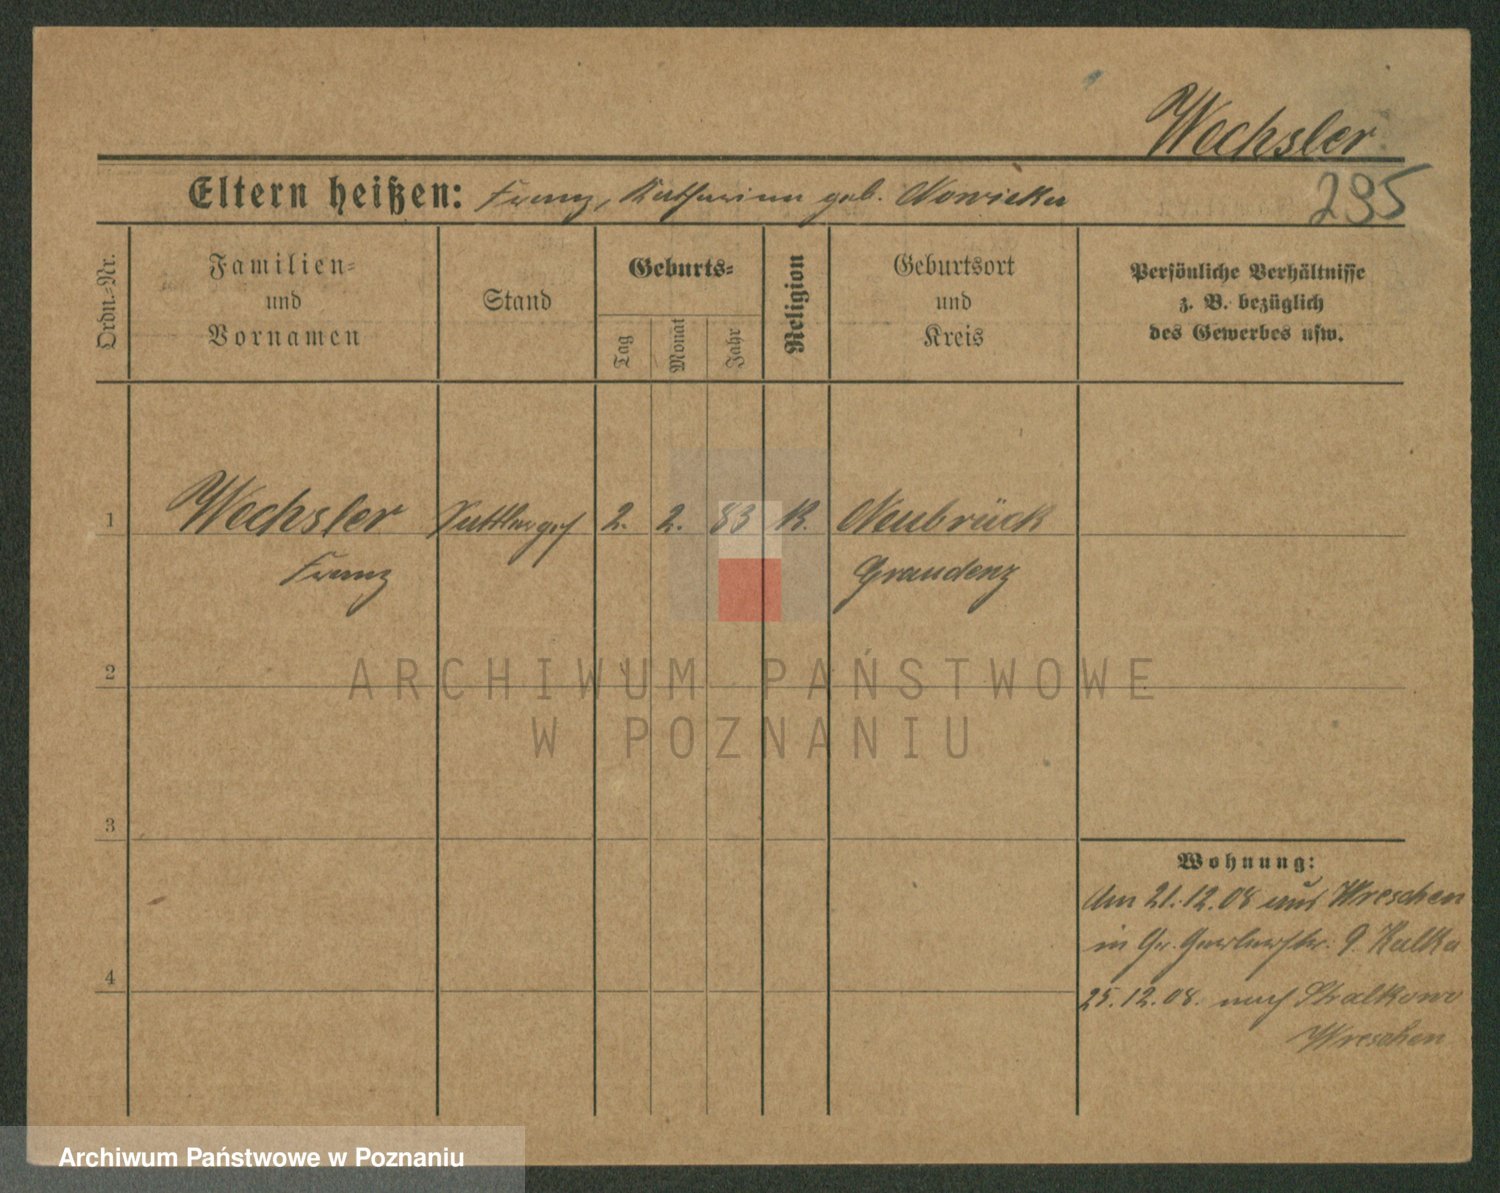 Wechsler
Eltern heißen: Franz, Katharina geb. Nowicka
295
Ordn.-Nr.
Familien-
und
Vornamen
Stand
Geburts-
Tag
Monat
Jahr
Religion
Geburtsort
und
Kreis
Persönliche Verhältnisse
z. B. bezüglich
des Gewerbes usw.
1 Wechsler Sattlerges 2. 2. 83 K. Neubrück
Franz Graudenz
2
ARCHIWUM PAŃSTWOWE
W POZNANIU
3
Wohnung:
Am 21.12.08 aus Wreschen
in Gr. Gerberstr. 9.
4
25.12.08. nach Stralkowo
Wreschen
Archiwum Państwowe w Poznaniu